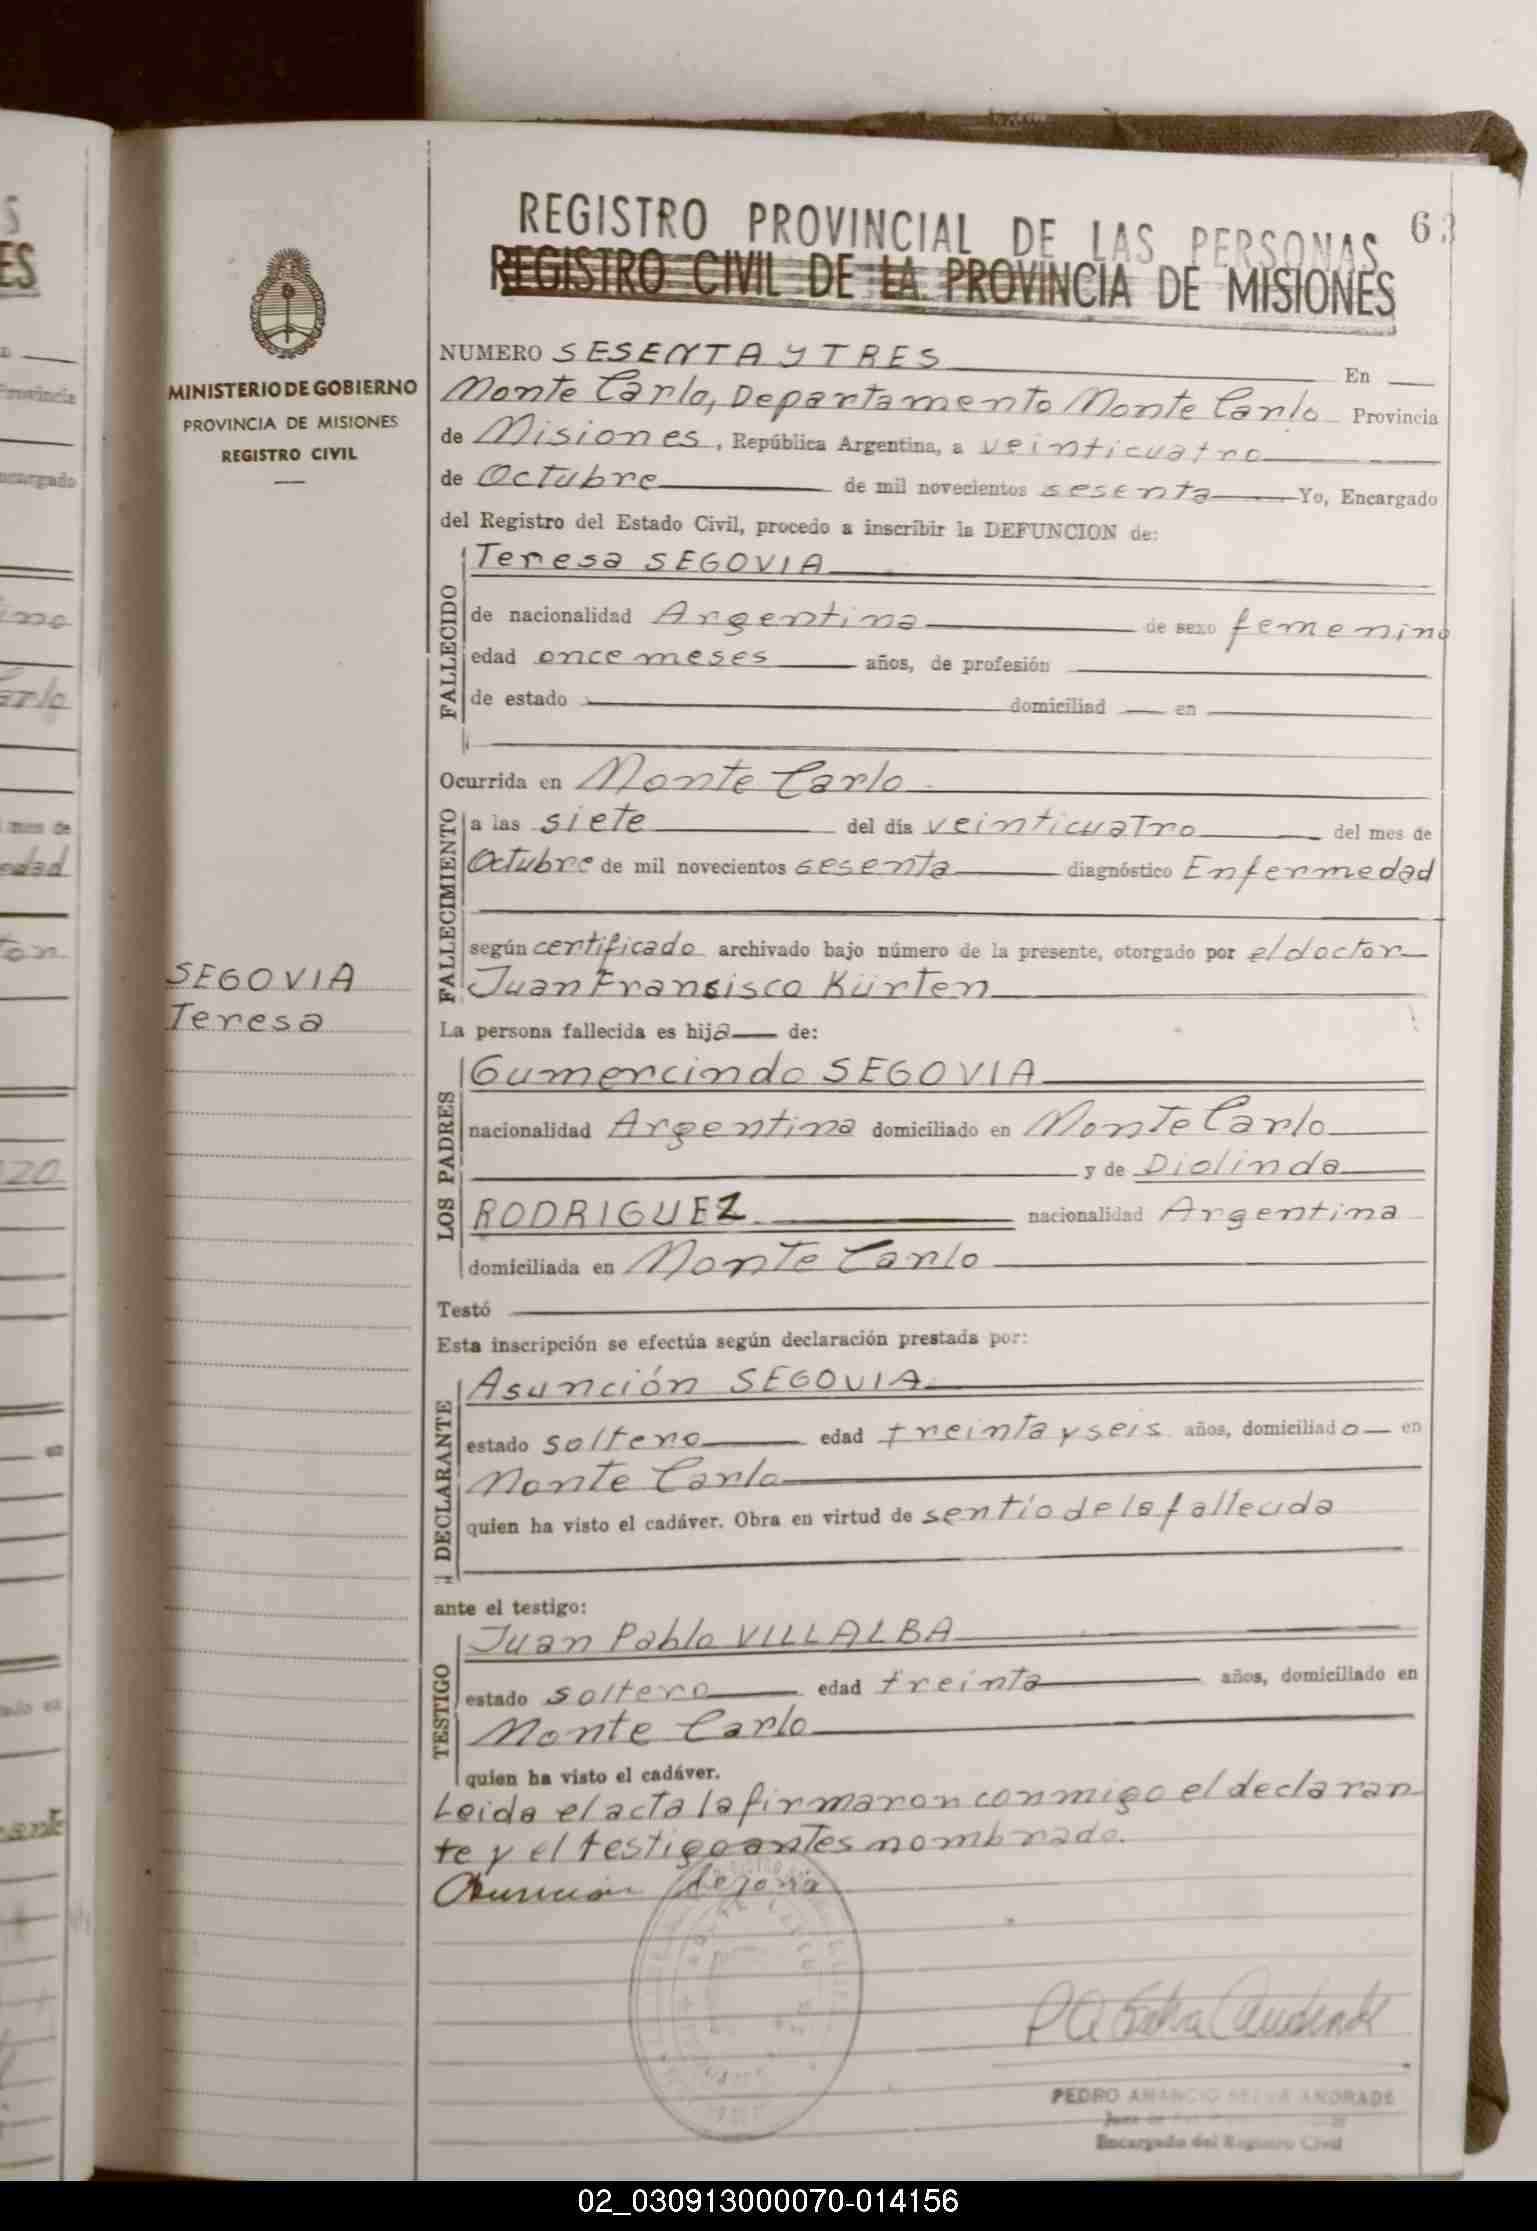 REGISTRO PROVINCIAL DE LAS PERSONAS
63
REGISTRO CIVIL DE LA PROVINCIA DE MISIONES
MINISTERIO DE GOBIERNO
PROVINCIA DE MISIONES
REGISTRO CIVIL
NUMERO SESENTA y TRES En
Monte Carlo, Departamento Monte Carlo Provincia
de Misiones, República Argentina, a veinticuatro
de Octubre de mil novecientos sesenta Yo, Encargado
del Registro del Estado Civil, procedo a inscribir la DEFUNCION de:
FALLECIDO
Teresa SEGOVIA
de nacionalidad Argentina de sexo femenino
edad once meses años, de profesión
de estado domiciliad en
Ocurrida en Monte Carlo
FALLECIMIENTO
a las siete del día veinticuatro del mes de
Octubre de mil novecientos sesenta diagnóstico Enfermedad
según certificado archivado bajo número de la presente, otorgado por el doctor
Juan Fransisco Kürten
SEGOVIA
Teresa
La persona fallecida es hija de:
LOS PADRES
Gumercindo SEGOVIA
nacionalidad Argentina domiciliado en Monte Carlo
y de Diolinda
RODRIGUEZ nacionalidad Argentina
domiciliada en Monte Carlo
Testó
Esta inscripción se efectúa según declaración prestada por:
DECLARANTE
Asunción SEGOVIA
estado soltero edad treinta y seis años, domiciliado en
Monte Carlo
quien ha visto el cadáver. Obra en virtud de sentío de la fallecida
ante el testigo:
TESTIGO
Juan Pablo VILLALBA
estado soltero edad treinta años, domiciliado en
Monte Carlo
quien ha visto el cadáver.
Leida el acta la firmaron conmigo el declaran
te y el testigo antes nombrado.
Asuncion Segovia
PEDRO AMANCIO SILVA ANDRADE
Encargado del Registro Civil
02_030913000070-014156